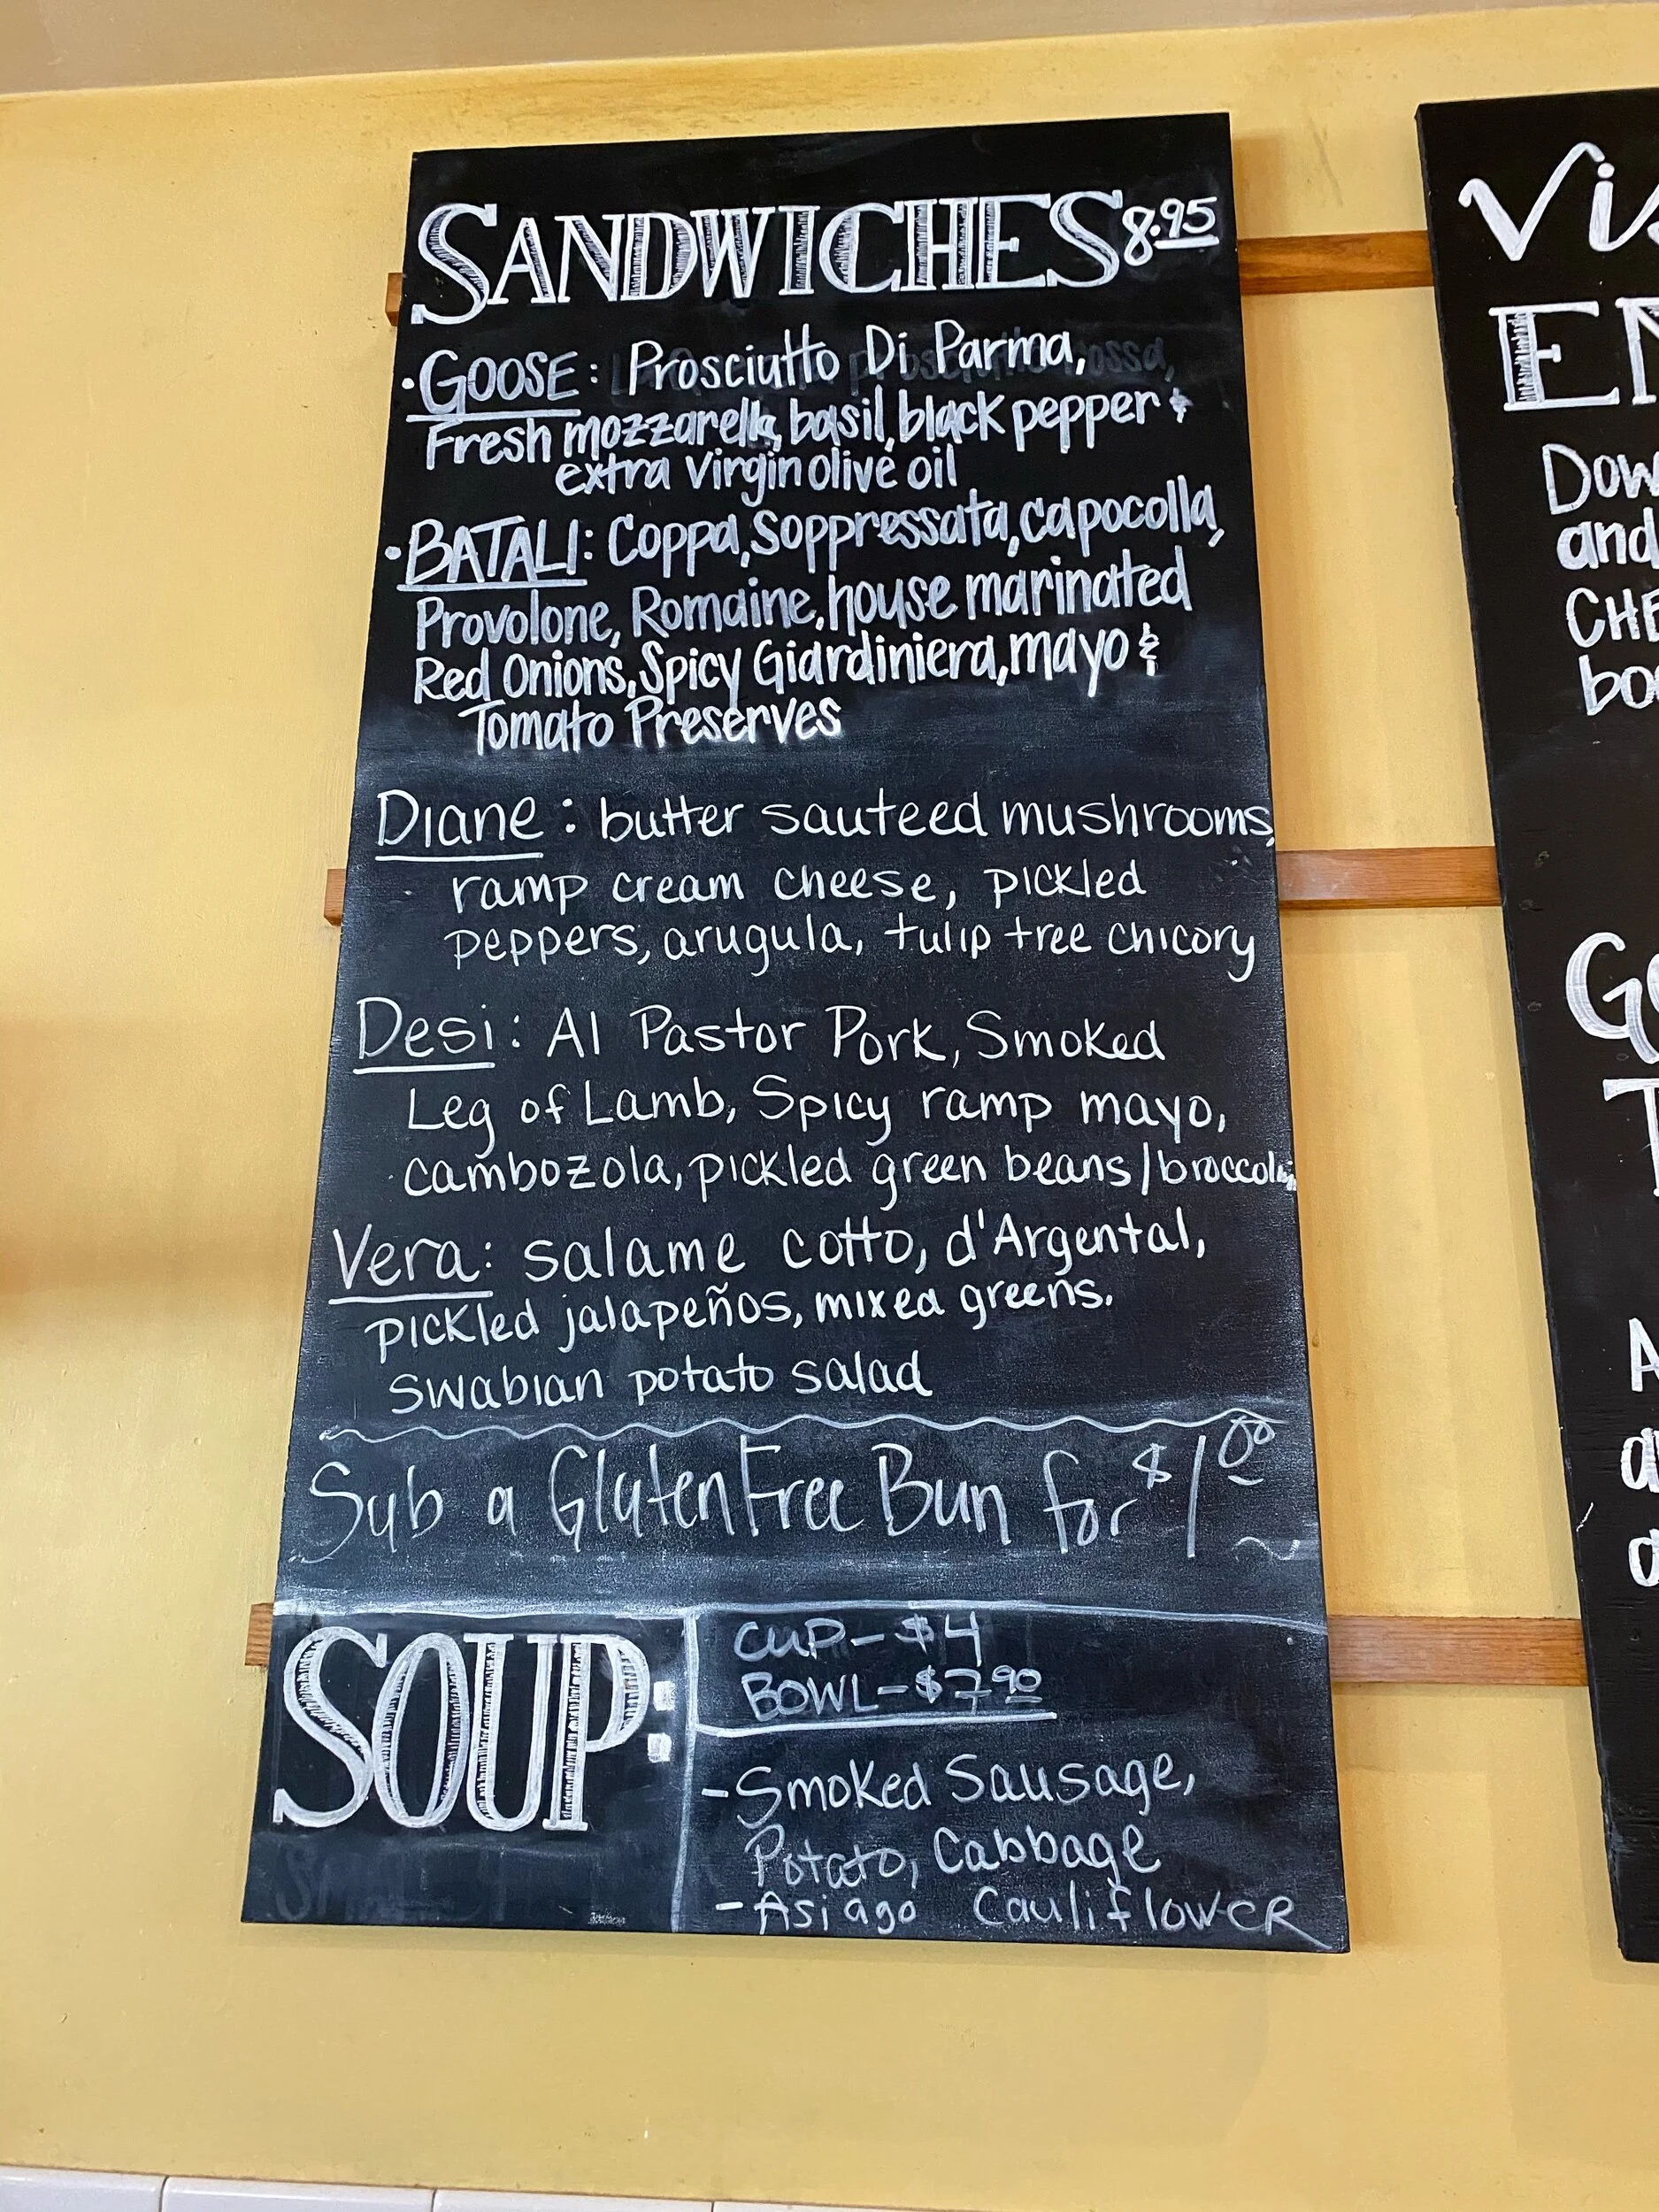 SANDWICHES 8.95
• GOOSE: Prosciutto Di Parma,
Fresh mozzarella, basil, black pepper &
extra virgin olive oil
• BATALI: Coppa, Soppressata, capocolla,
Provolone, Romaine, house marinated
Red Onions, Spicy Giardiniera, mayo &
Tomato Preserves
Diane: butter sauteed mushrooms,
ramp cream cheese, pickled
peppers, arugula, tulip tree chicory
Desi: Al Pastor Pork, Smoked
Leg of Lamb, Spicy ramp mayo,
cambozola, pickled green beans/broccolini
Vera: salame cotto, d'Argental,
pickled jalapeños, mixed greens.
swabian potato salad
Sub a Gluten Free Bun for $1.00
SOUP:
CUP - $4
BOWL - $7.90
- Smoked Sausage,
Potato, Cabbage
- Asiago Cauliflower
and
Go